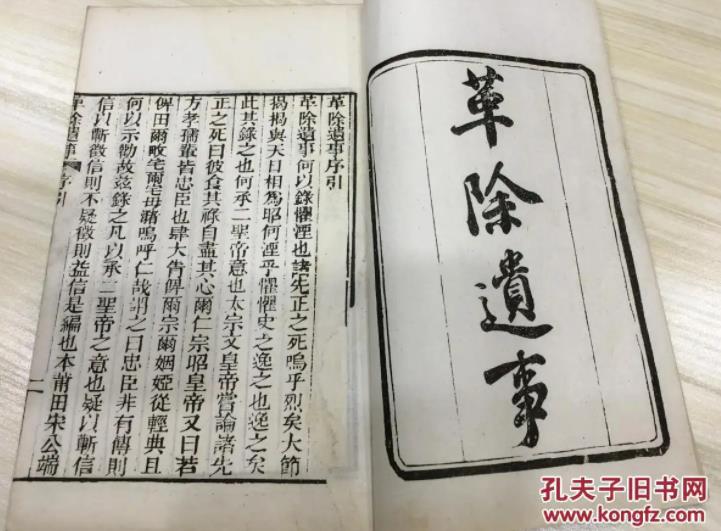 革除遺事
革除遺事序引
革除遺事何以錄懼湮也諸先正之死嗚乎烈矣大節
揭揭與天日相爲昭何湮乎懼懼史之逸之也逸之矣
此其錄之也何承二聖帝意也太宗文皇帝嘗論諸先
正之死曰彼食其祿自盡其心爾仁宗昭皇帝又曰若
方孝孺輩皆忠臣也肆大告俾爾宗爾姻婭從輕典且
俾田爾畋宅爾宅毋瀦嗚呼仁哉謂之曰忠臣非有傳則
何以示勸故茲錄之凡以承二聖帝之意也疑以斬信
信以斬徵信則不疑徵則益信是編也本莆田宋公端
革除遺事
序引
二
孔夫子旧书网
www.kongfz.com